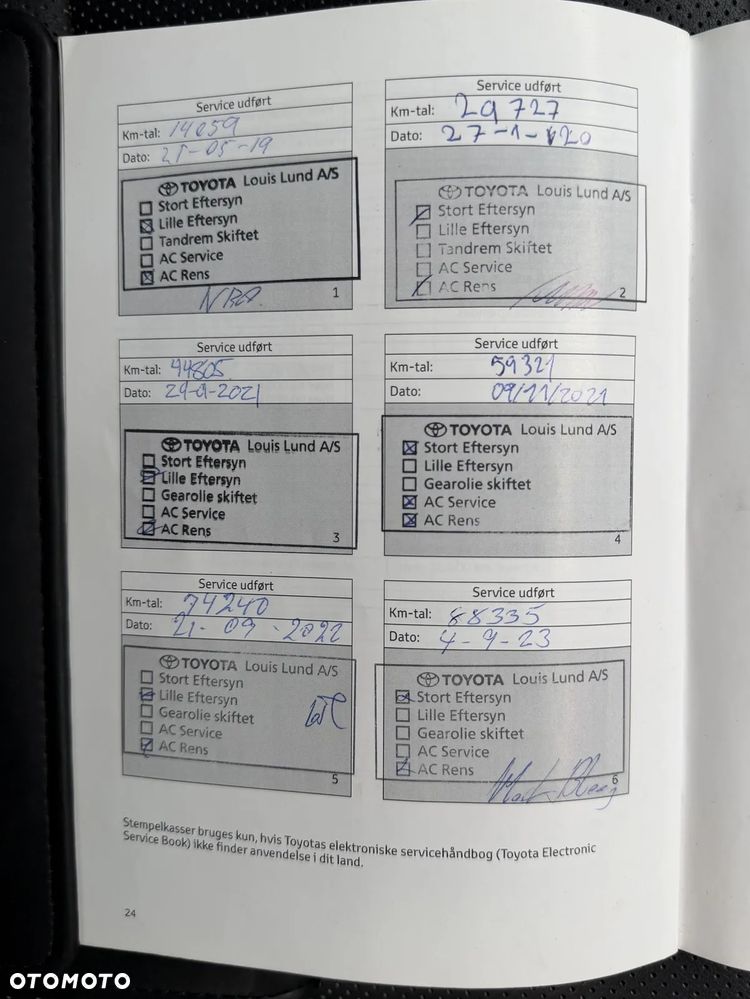 Service udført
Km-tal: 14059
Dato: 21-05-19
TOYOTA Louis Lund A/S
Stort Eftersyn
Lille Eftersyn
Tandrem Skiftet
AC Service
AC Rens
1
Service udført
Km-tal: 29727
Dato: 27-1-20
TOYOTA Louis Lund A/S
Stort Eftersyn
Lille Eftersyn
Tandrem Skiftet
AC Service
AC Rens
2
Service udført
Km-tal: 44805
Dato:
TOYOTA Louis Lund A/S
Stort Eftersyn
Lille Eftersyn
Gearolie skiftet
AC Service
AC Rens
3
Service udført
Km-tal: 59321
Dato: 09/11/2021
TOYOTA Louis Lund A/S
Stort Eftersyn
Lille Eftersyn
Gearolie skiftet
AC Service
AC Rens
4
Service udført
Km-tal: 74240
Dato: 21-09-2022
TOYOTA Louis Lund A/S
Stort Eftersyn
Lille Eftersyn
Gearolie skiftet
AC Service
AC Rens
5
Service udført
Km-tal: 88335
Dato: 4-9-23
TOYOTA Louis Lund A/S
Stort Eftersyn
Lille Eftersyn
Gearolie skiftet
AC Service
AC Rens
6
Stempelkasser bruges kun, hvis Toyotas elektroniske servicehåndbog (Toyota Electronic
Service Book) ikke finder anvendelse i dit land.
24
OTOMOTO